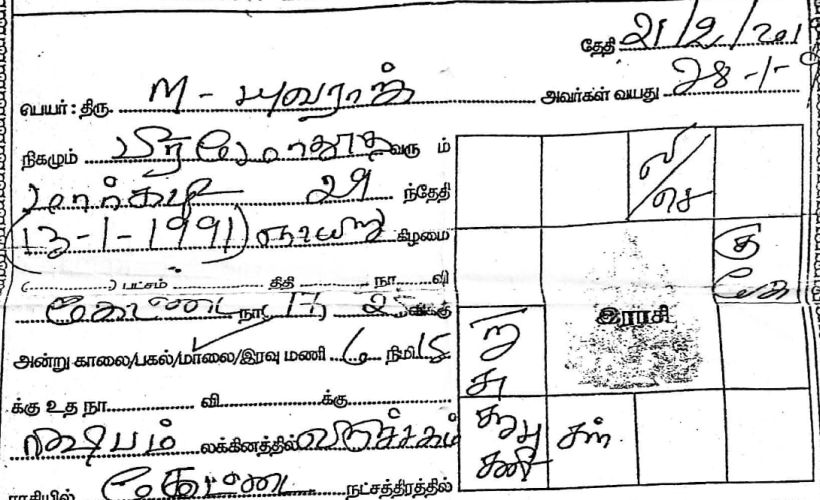 தேதி 21/2/201
பெயர் : திரு. M - யுவராஜ் அவர்கள் வயது 28-1-
நிகழும் பிரமோதூத வரு ம்
மார்கழி 29 ந்தேதி
(13-1-1991) ஞாயிறு கிழமை
(............) பட்சம் ............ திதி ............ நா. ...... வி
கேட்டை நா 17 25 வி க்கு
அன்று காலை/பகல்/மாலை/இரவு மணி 6 நிமி 15
க்கு உத நா............ வி ............ க்கு
ரிஷபம் லக்கினத்தில் விருச்சகம்
ராசியில் கேட்டை நட்சத்திரத்தில்
ல/செ
கு
கே
இராசி
ரா
சு
சூ பு
சனி
சன்